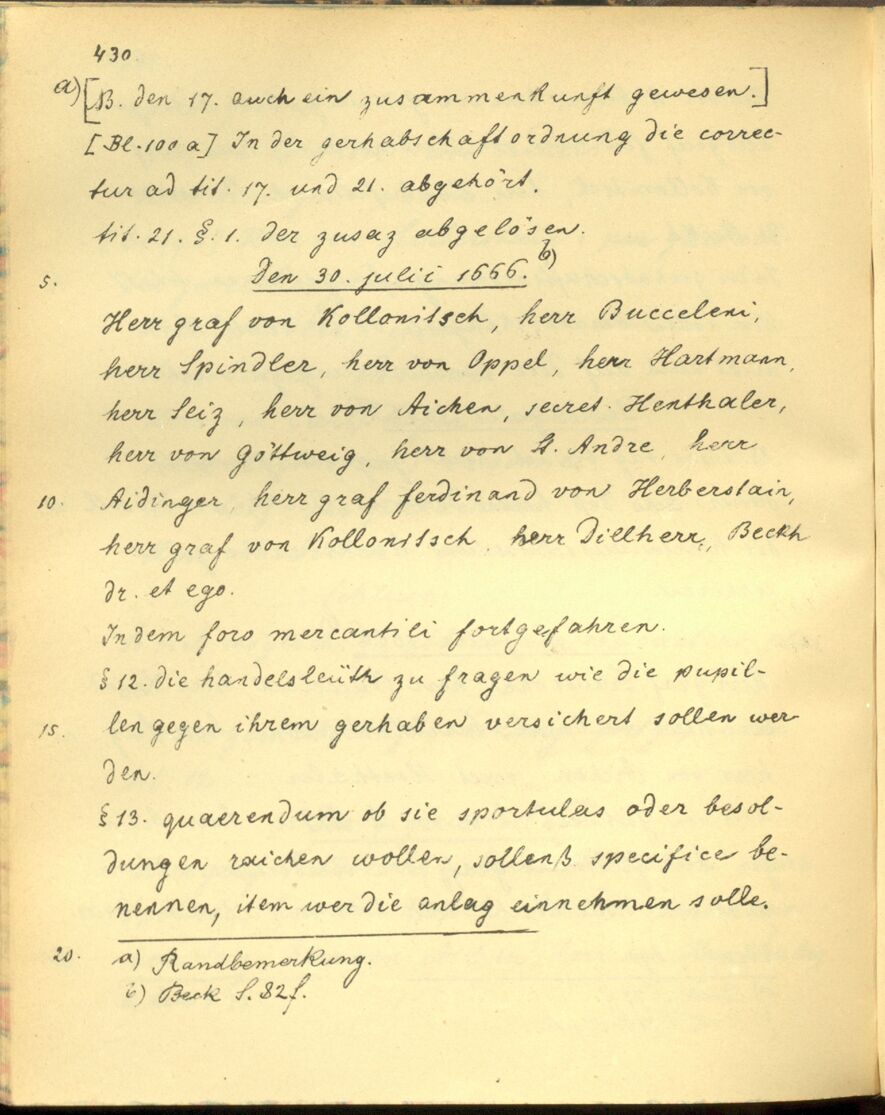 430
a) [B. den 17. auch ein zusammenkunft gewesen.]
[Bl. 100 a] In der gerhabschaftordnung die correc-
tur ad tit. 17. und 21. abgehört.
tit. 21. §. 1. der zusaz abgelösen.
5. Den 30. julii 1666. b)
Herr graf von Kollonitsch, herr Bucceleni,
herr Spindler, herr von Oppel, herr Hartmann,
herr Seiz, herr von Aichen, secret. Henthaler,
herr von Göttweig, herr von St. Andre, herr
10. Aidinger, herr graf ferdinand von Herberstain,
herr graf von Kollonitsch, herr Dillherr, Beckh
dr. et ego.
In dem foro mercantili fortgefahren.
§ 12. die handelsleüth zu fragen wie die pupil-
15. len gegen ihrem gerhaben versichert sollen wer
den.
§ 13. quaerendum ob sie sportulas oder besol-
dungen raichen wollen, sollenß specifice be-
nennen, item wer die anlag einnehmen solle.
20. a) Randbemerkung.
b) Beck S. 82 f.